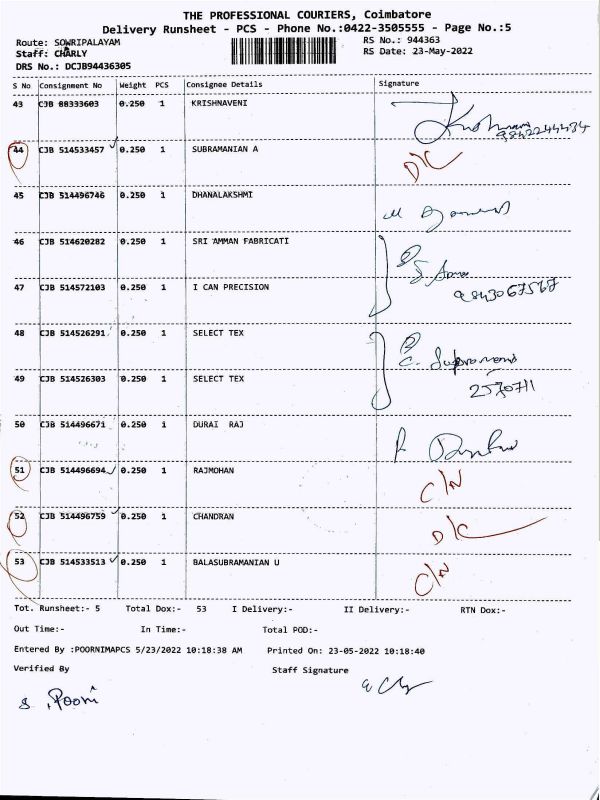 THE PROFESSIONAL COURIERS, Coimbatore
Delivery Runsheet - PCS - Phone No.:0422-3505555 - Page No.:5
Route: SOWRIPALAYAM RS No.: 944363
Staff: CHARLY RS Date: 23-May-2022
DRS No.: DCJB94436305
S No Consignment No Weight PCS Consignee Details Signature
43 CJB 08333603 0.250 1 KRISHNAVENI
9842244434
44 CJB 514533457 0.250 1 SUBRAMANIAN A D/C
45 CJB 514496746 0.250 1 DHANALAKSHMI
46 CJB 514620282 0.250 1 SRI AMMAN FABRICATI
47 CJB 514572103 0.250 1 I CAN PRECISION
9843067567
48 CJB 514526291 0.250 1 SELECT TEX
49 CJB 514526303 0.250 1 SELECT TEX
2570711
50 CJB 514496671 0.250 1 DURAI RAJ
51 CJB 514496694 0.250 1 RAJMOHAN C/N
52 CJB 514496759 0.250 1 CHANDRAN D/C
53 CJB 514533513 0.250 1 BALASUBRAMANIAN U C/N
Tot. Runsheet:- 5 Total Dox:- 53 I Delivery:- II Delivery:- RTN Dox:-
Out Time:- In Time:- Total POD:-
Entered By :POORNIMAPCS 5/23/2022 10:18:38 AM Printed On: 23-05-2022 10:18:40
Verified By Staff Signature
S. Poorni